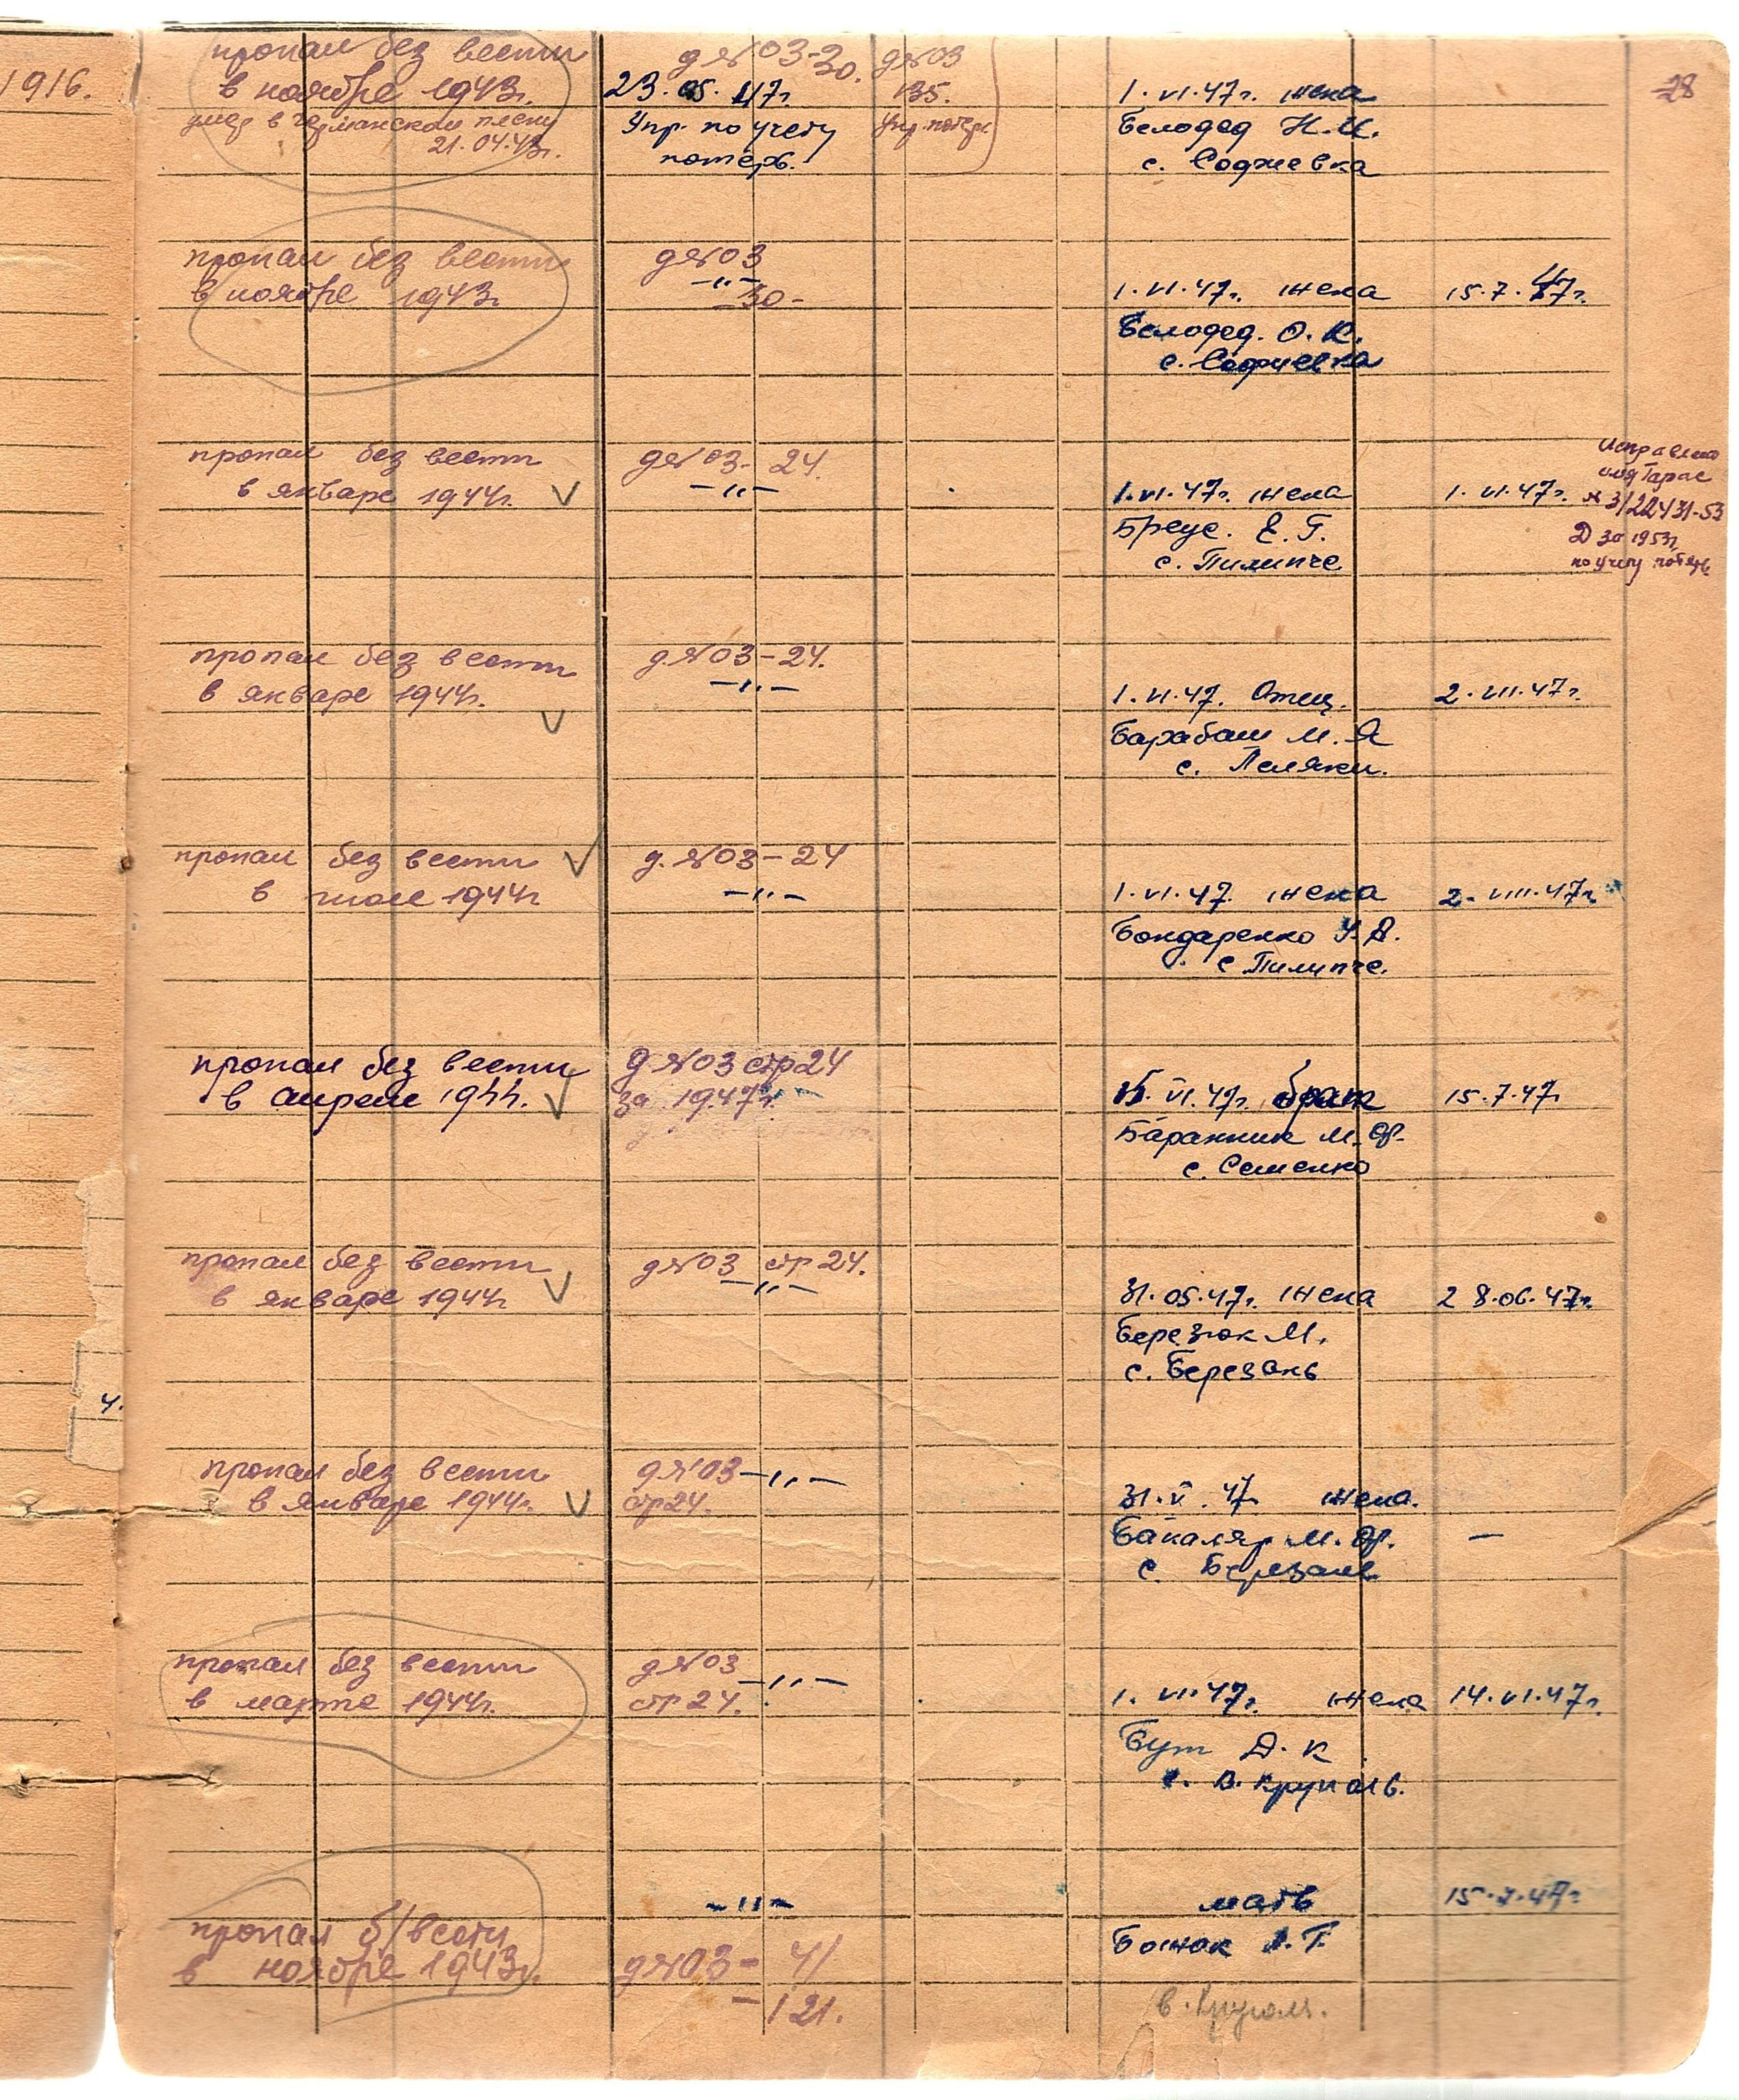 1916.
28
пропал без вести
в ноябре 1943г.
умер в германском плену
21.04.43г.
д №03-30.
23.05.47г.
Упр. по учету
потерь.
д №03
135.
Упр. потерь
1.VI.47г. жена
Белодед Н.И.
с. Софиевка
пропал без вести
в ноябре 1943г.
д №03
-"-
-30-
1.VI.47г. жена
Белодед. О.К.
с. Софиевка
15.7.47г.
пропал без вести
в январе 1944г. V
д №03- 24.
-"-
1.VI.47г. жена
Бреус. Е.Г.
с. Пилипче
1.VI.47г.
Исправлено
имя Тарас
№ 3/122431-53
Д за 1953г.
по учету потерь
пропал без вести
в январе 1944г.
V
д №03-24.
-"-
1.VI.47. Отец.
Барабаш М.Я
с. Леляки.
2.VII.47г.
пропал без вести V
в июле 1944г
д. №03-24
-"-
1.VI.47. жена
Бондаренко У.А.
с Пилипче.
2.VIII.47г.
пропал без вести
в апреле 1944. V
д №03 стр 24
за 1947г.
VI.47г. брат
Баранник М.Ф.
с. Семенко
15.7.47г
пропал без вести
в январе 1944г V
д №03 стр 24.
-"-
31.05.47г. жена
Березюк М.
с. Березань
28.06.47г.
пропал без вести
в январе 1944г. V
д №03 -"-
стр 24.
31.V.47. жена.
Бакаляр М.Ф.
с. Березань
—
4.
пропал без вести
в марте 1944г.
д №03 -"-
стр 24.
1.VI.47г. жена
Бут Д.К
с. В. Круполь.
14.VI.47г.
пропал б/вести
в ноябре 1943г.
-"-
д №03- 41
-121.
мать
Божок А.Г.
в. Круполь.
15.7.47г